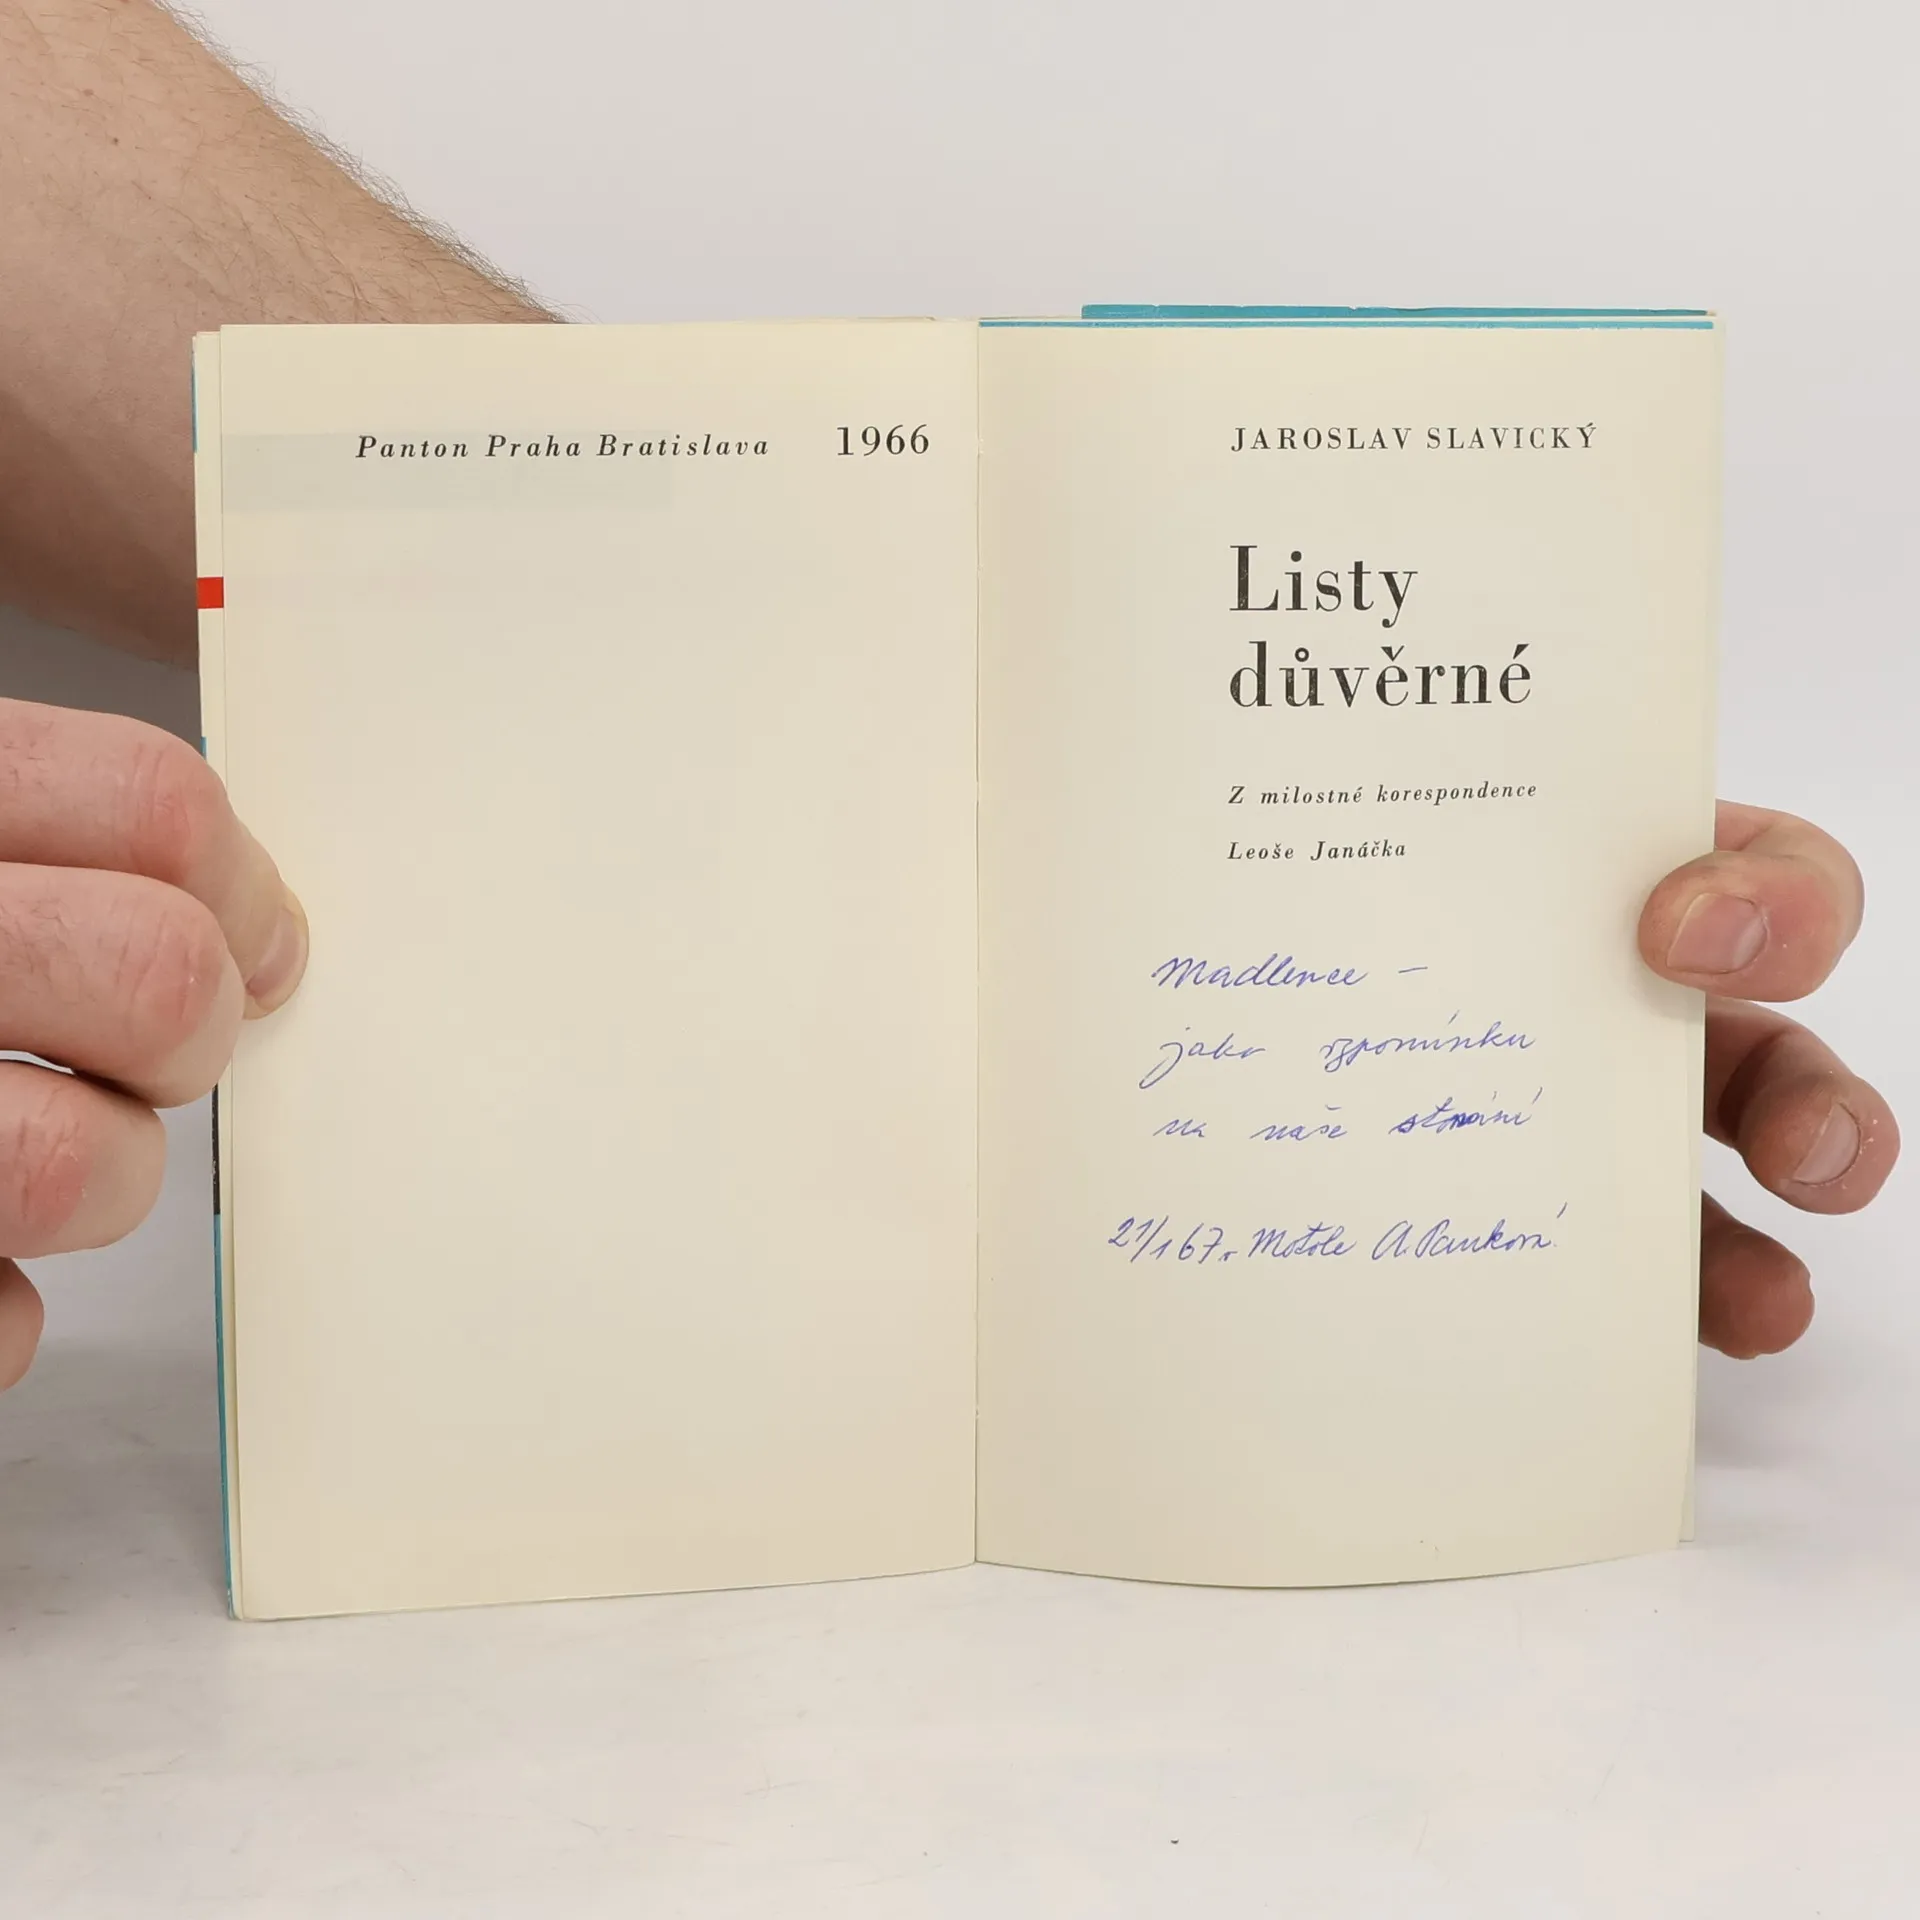 Panton Praha Bratislava 1966
JAROSLAV SLAVICKÝ
Listy
důvěrné
Z milostné korespondence
Leoše Janáčka
Madlence —
jako vzpomínku
na naše
21/1 67. Motole A.